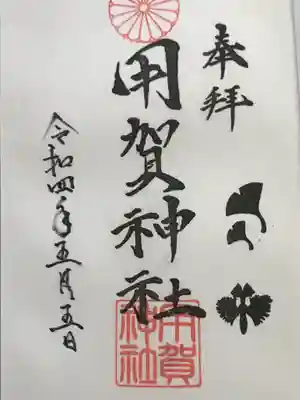 奉拝
用賀神社
令和四年五月五日
用賀神社